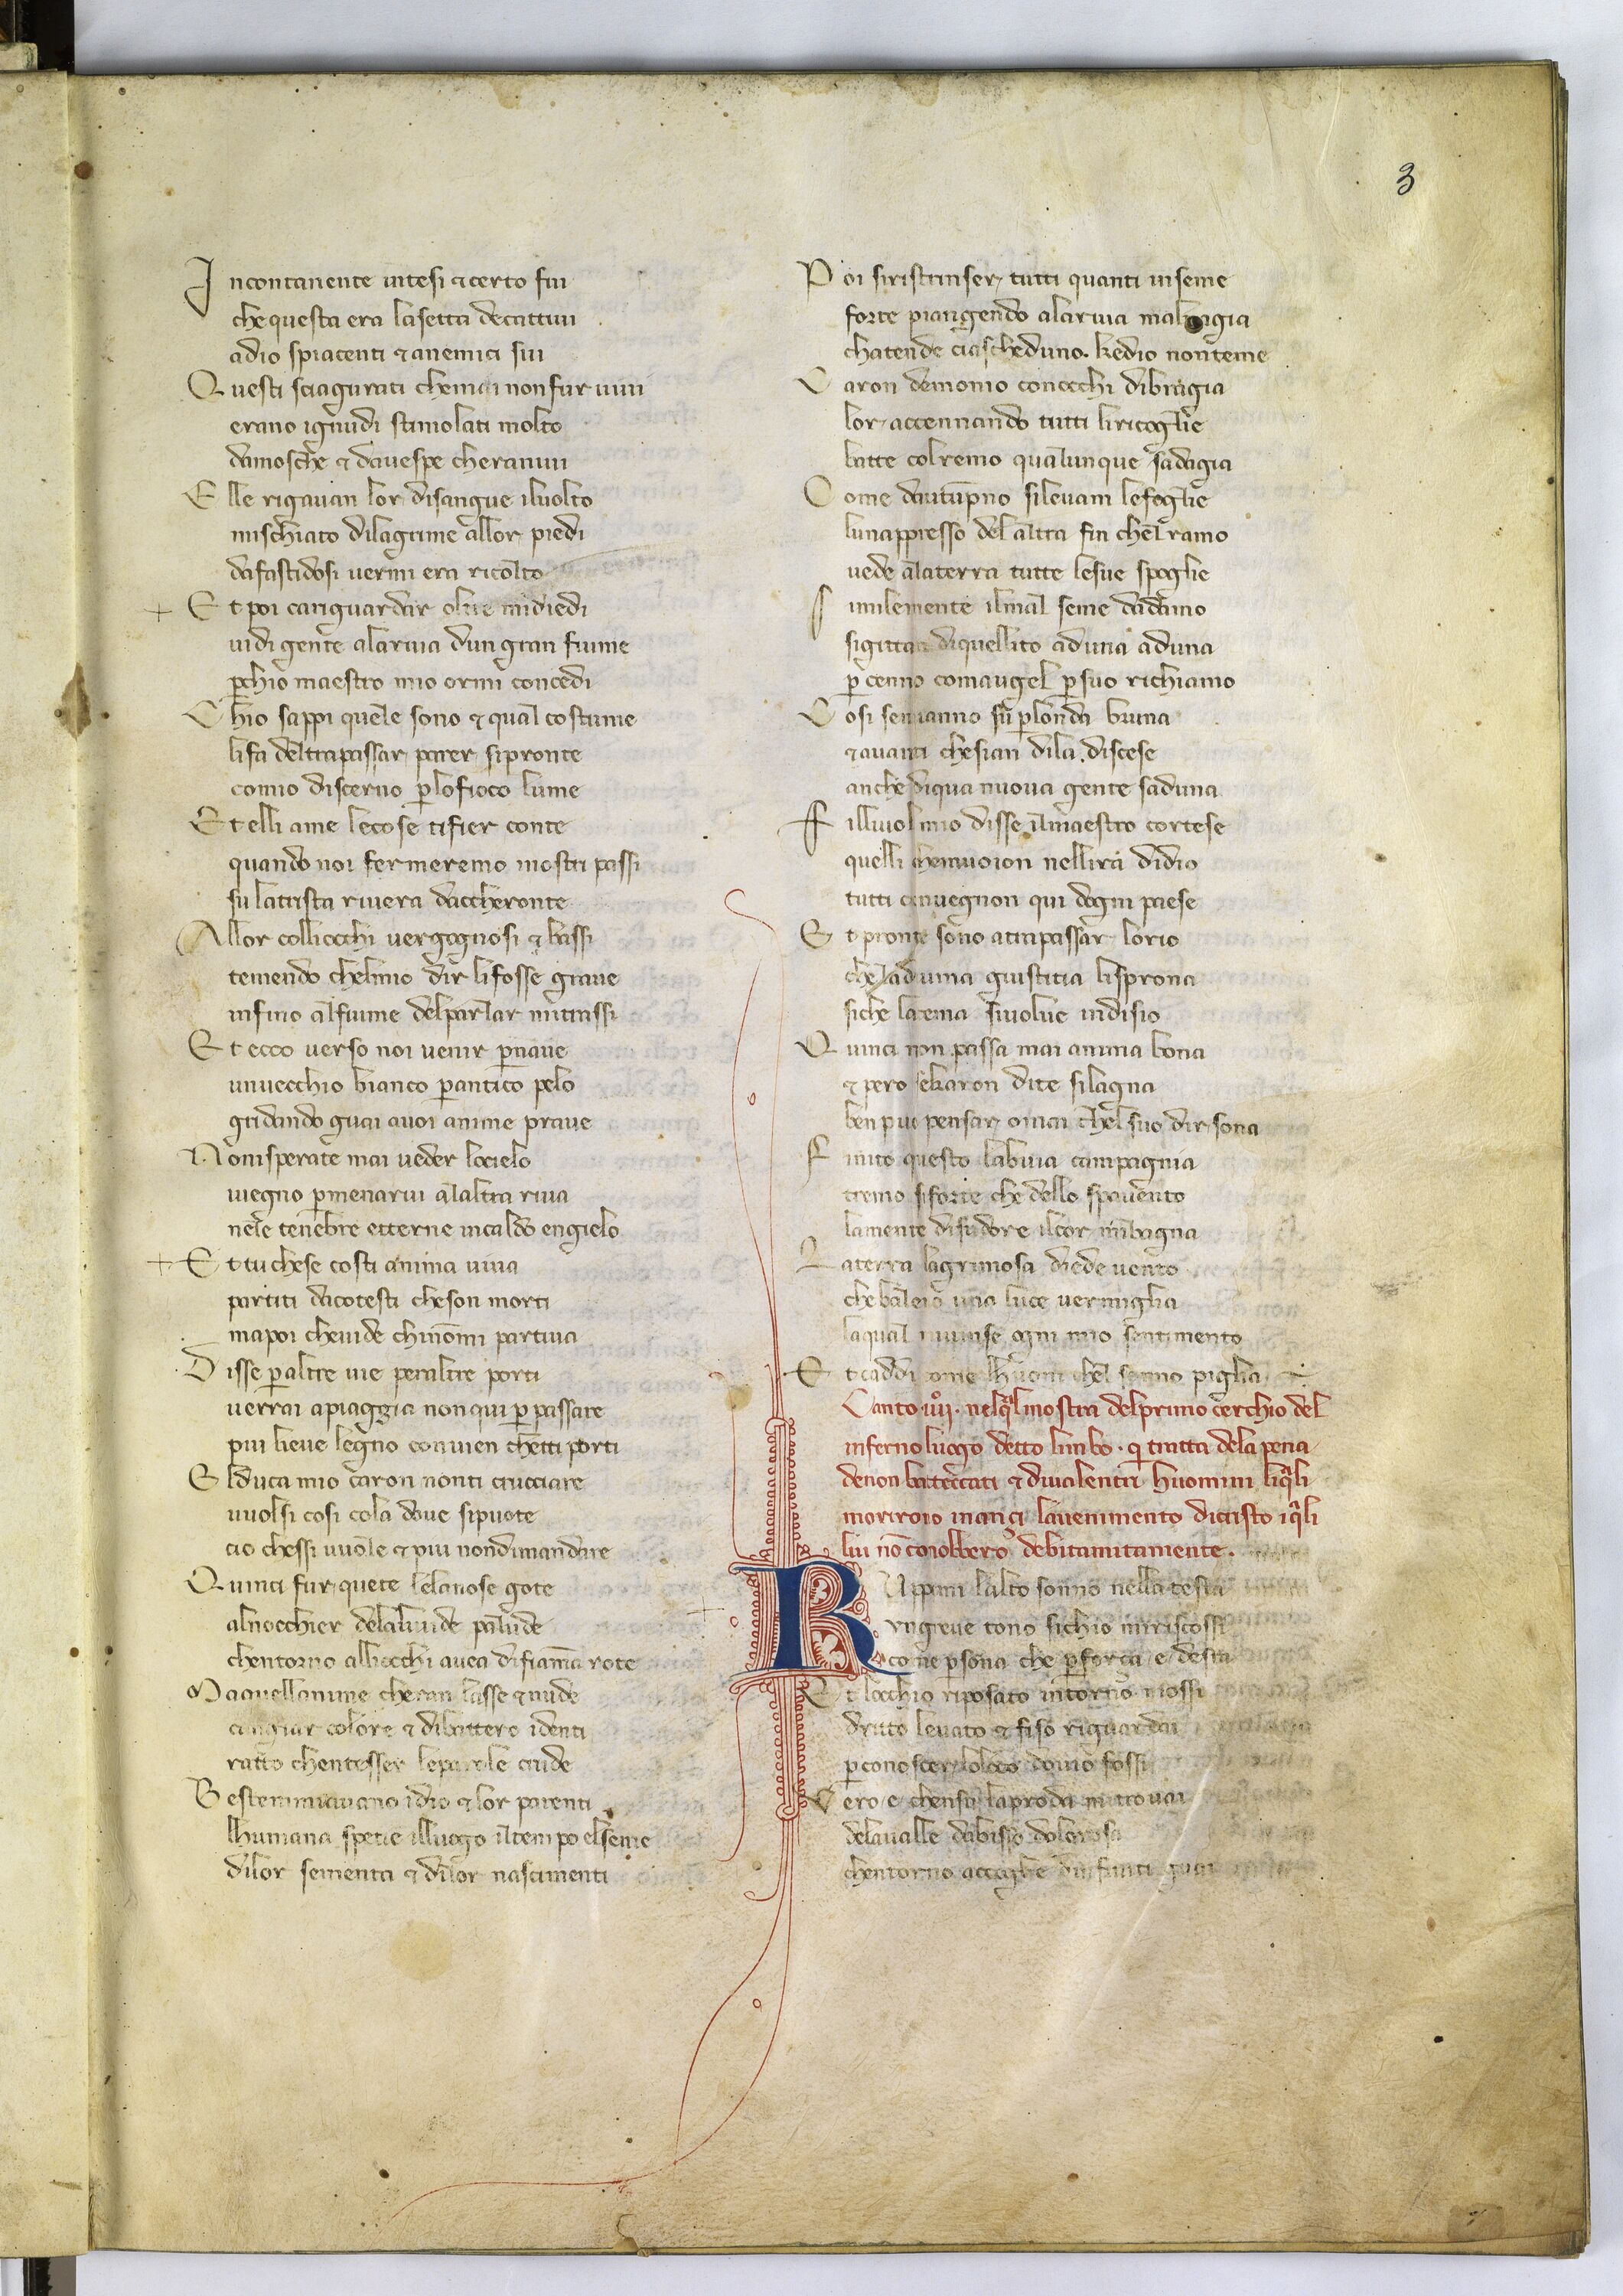 3
Incontanente intesi &certo fui
chequesta era lasetta decattiui
adio spiacenti &anemici sui
Questi sciagurati chemai nonfur uiui
erano ignudi stimolati molto
damosche & dauespe cheraniui
Elle rigauan lor disangue iluolto
mischiato dilagrime allor piedi
dafastidosi uermi era ricolto
Et poi cariguardar oltre midiedi
uidi gente alariua dungran fiume
perchio maestro mio ormi concedi
Chio sappi quele sono & qual costume
lifa deltrapassar parer sipronte
comio discerno perlofioco lume
Et elli ame lecose tifier conte
quando noi fermeremo nostri passi
su latrista riuera dacheronte
Allor colliocchi uergognosi & bassi
temendo chelmio dir lifosse graue
infino alfiume delparlar mitrassi
Et ecco uerso noi uenir pernaue
unuecchio bianco perantico pelo
gridando guai auoi anime praue
Nonisperate mai ueder locielo
iuegno permenarui alaltra riua
nele tenebre etterne incaldo engielo
Et tu chese costi anima uiua
partiti dacotesti cheson morti
mapoi cheuide chinomi partiua
Disse peraltre uie peraltre porti
uerrai apiaggia non qui per passare
piu lieue legno conuien chetti porti
Elduca mio caron nonti crucciare
uuolsi cosi cola doue sipuote
cio chessi uuole & piu nondimandare
Quinci fur quete lelanose gote
alnocchier delaliuide palude
chentorno alliocchi auea difiama rote
Maquellanime cheran lasse &nude
cangiar colore & dibattero identi
ratto chenteser leparole crude
Bestemmiauano idio & lor parenti
lhumana spetie illuogo iltempo elseme
dilor sementa & dilor nascimenti
Poi siristrinser tutti quanti inseme
forte piangendo alariua maluagia
chatende ciascheduno. kedio nonteme
Caron demonio conocchi dibragia
lor accennando tutti liricoglie
batte colremo qualunque sadagia
Come dautumpno sileuam lefoglie
lunappresso del altra fin chelramo
uede alaterra tutte lesue spoglie
Similemente ilmal seme dadamo
sigittan diquellito aduna aduna
per cenno comaugel persuo richiamo
Cosi senuanno su perlonda bruna
&auanti chesian dila discese
anchediqua nuoua gente saduna
Filliuol mio disse ilmaestro cortese
quelli chemuoion nellira didio
tutti conuegnon qui dogni paese
Et pronte sono atrapassar lorio
che ladiuina giustitia lisprona
siche latema siuolue indisio
Quinci non passa mai anima bona
& pero sekaron dite silagna
ben puoi pensar omai chel suo dir sona
Finito questo labuia campagnia
tremo siforte che dello spauento
lamente disudore ilcor mibagna
Laterra lagrimosa diede uento
chebaleno una luce uermiglia
laqual miuinse ogni mio sentimento
Et caddi come lhuom chel sonno piglia
Canto .iiii. nelqual mostra delprimo cerchio del
inferno luogo detto limbo. qui tratta dela pena
denon battecati & diualenti huomini liquali
moriroro inanci lauenimento dicristo iquali
lui non conobbero debitamitamente.
RUppemi lalto sonno nella testa
ungreue tono sichio miriscossi
come persona che perforça e desta
Et locchio riposato intorno mossi
dritto leuato & fiso riguardai
perconoscer loloco douio fossi
Vero e chensu laproda mi trouai
delaualle dabisso dolorosa
chentorno accoglie dinfiniti guai